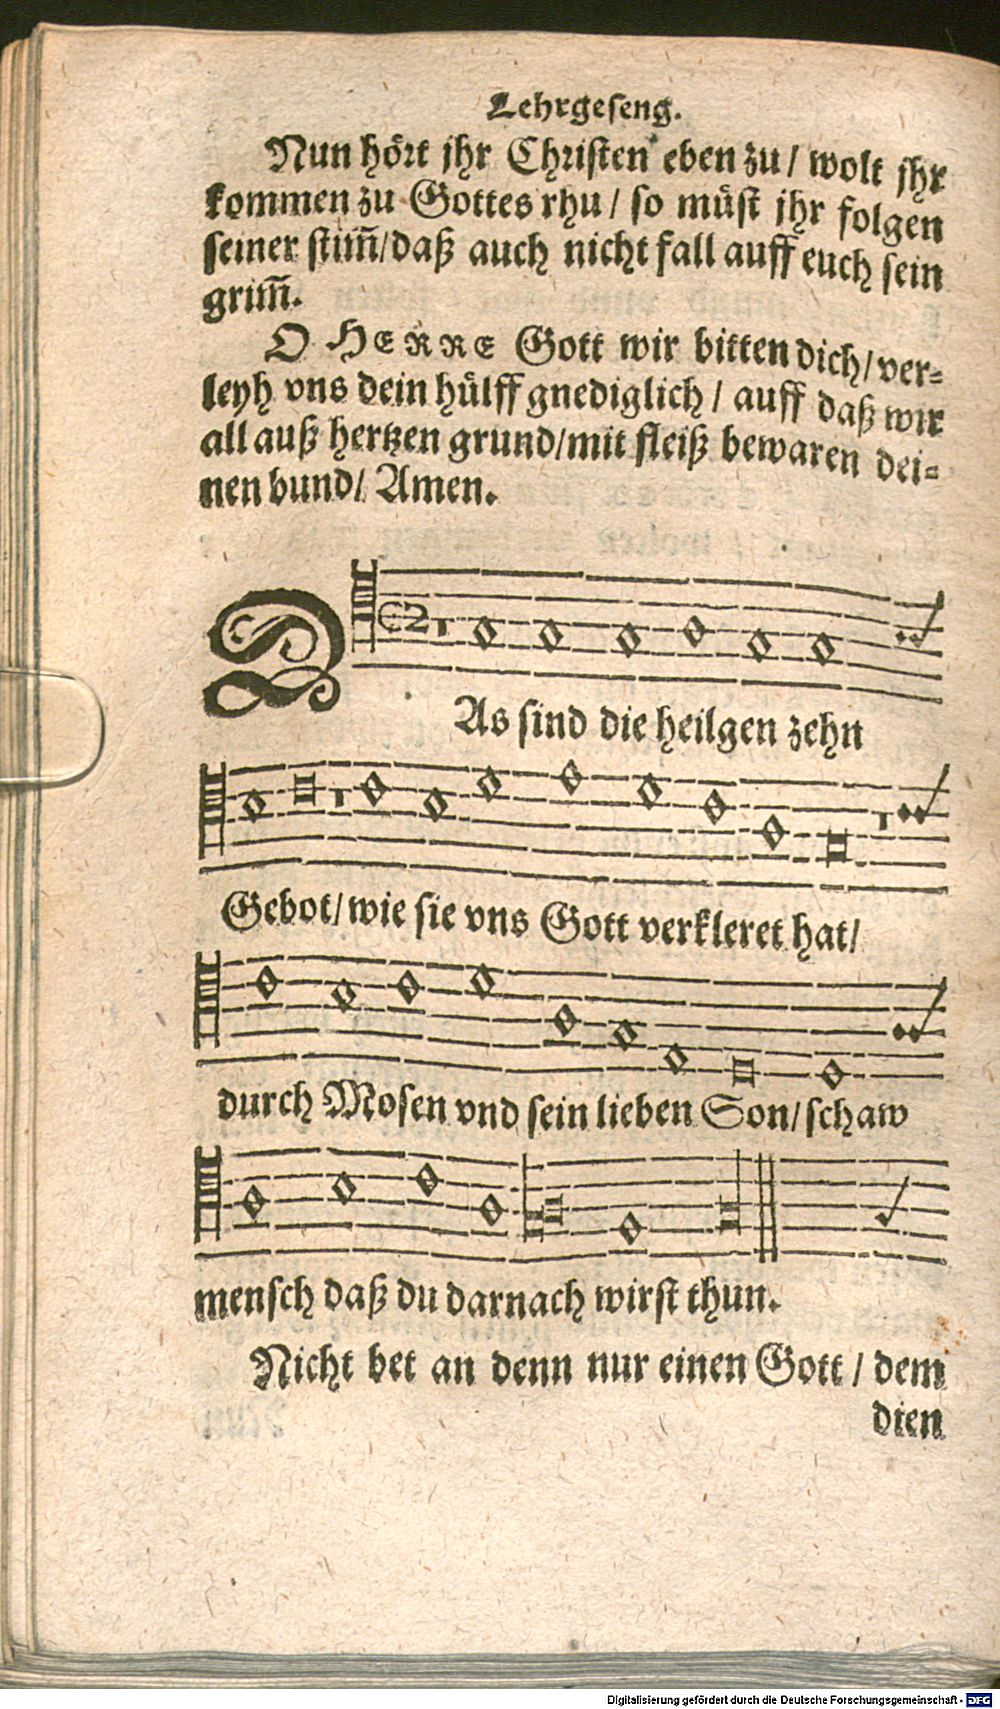 Lehrgeseng.
Nun hört jhr Christen eben zu/ wolt jhr
kommen zu Gottes rhu/ so müst jhr folgen
seiner stim̃/daß auch nicht fall auff euch sein
grim̃.
O HERRE Gott wir bitten dich/ver-
leyh vns dein hülff gnediglich/ auff daß wir
all auß hertzen grund/mit fleiß bewaren dei-
nen bund/ Amen.
DAs sind die heilgen zehn
Gebot/wie sie vns Gott verkleret hat/
durch Mosen vnd sein lieben Son/schaw
mensch daß du darnach wirst thun.
Nicht bet an denn nur einen Gott/ dem
dien
Digitalisierung gefördert durch die Deutsche Forschungsgemeinschaft - DFG